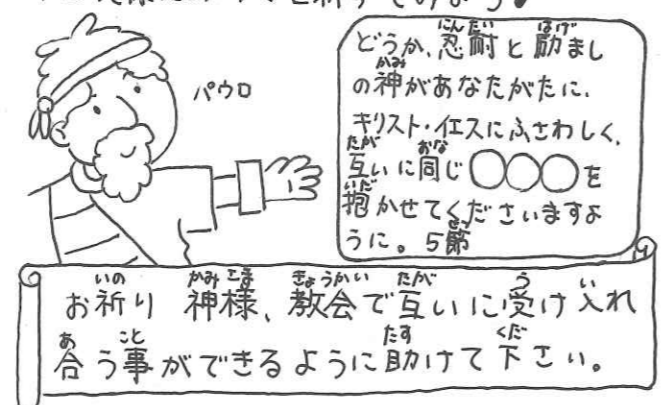 を祈ってみよう♪
パウロ
どうか、忍耐と励まし
の神があなたがたに、
キリスト・イエスにふさわしく、
互いに同じ〇〇〇を
抱かせてくださいますよ
うに。5節
お祈り 神様、教会で互いに受け入れ
合う事ができるように助けて下さい。